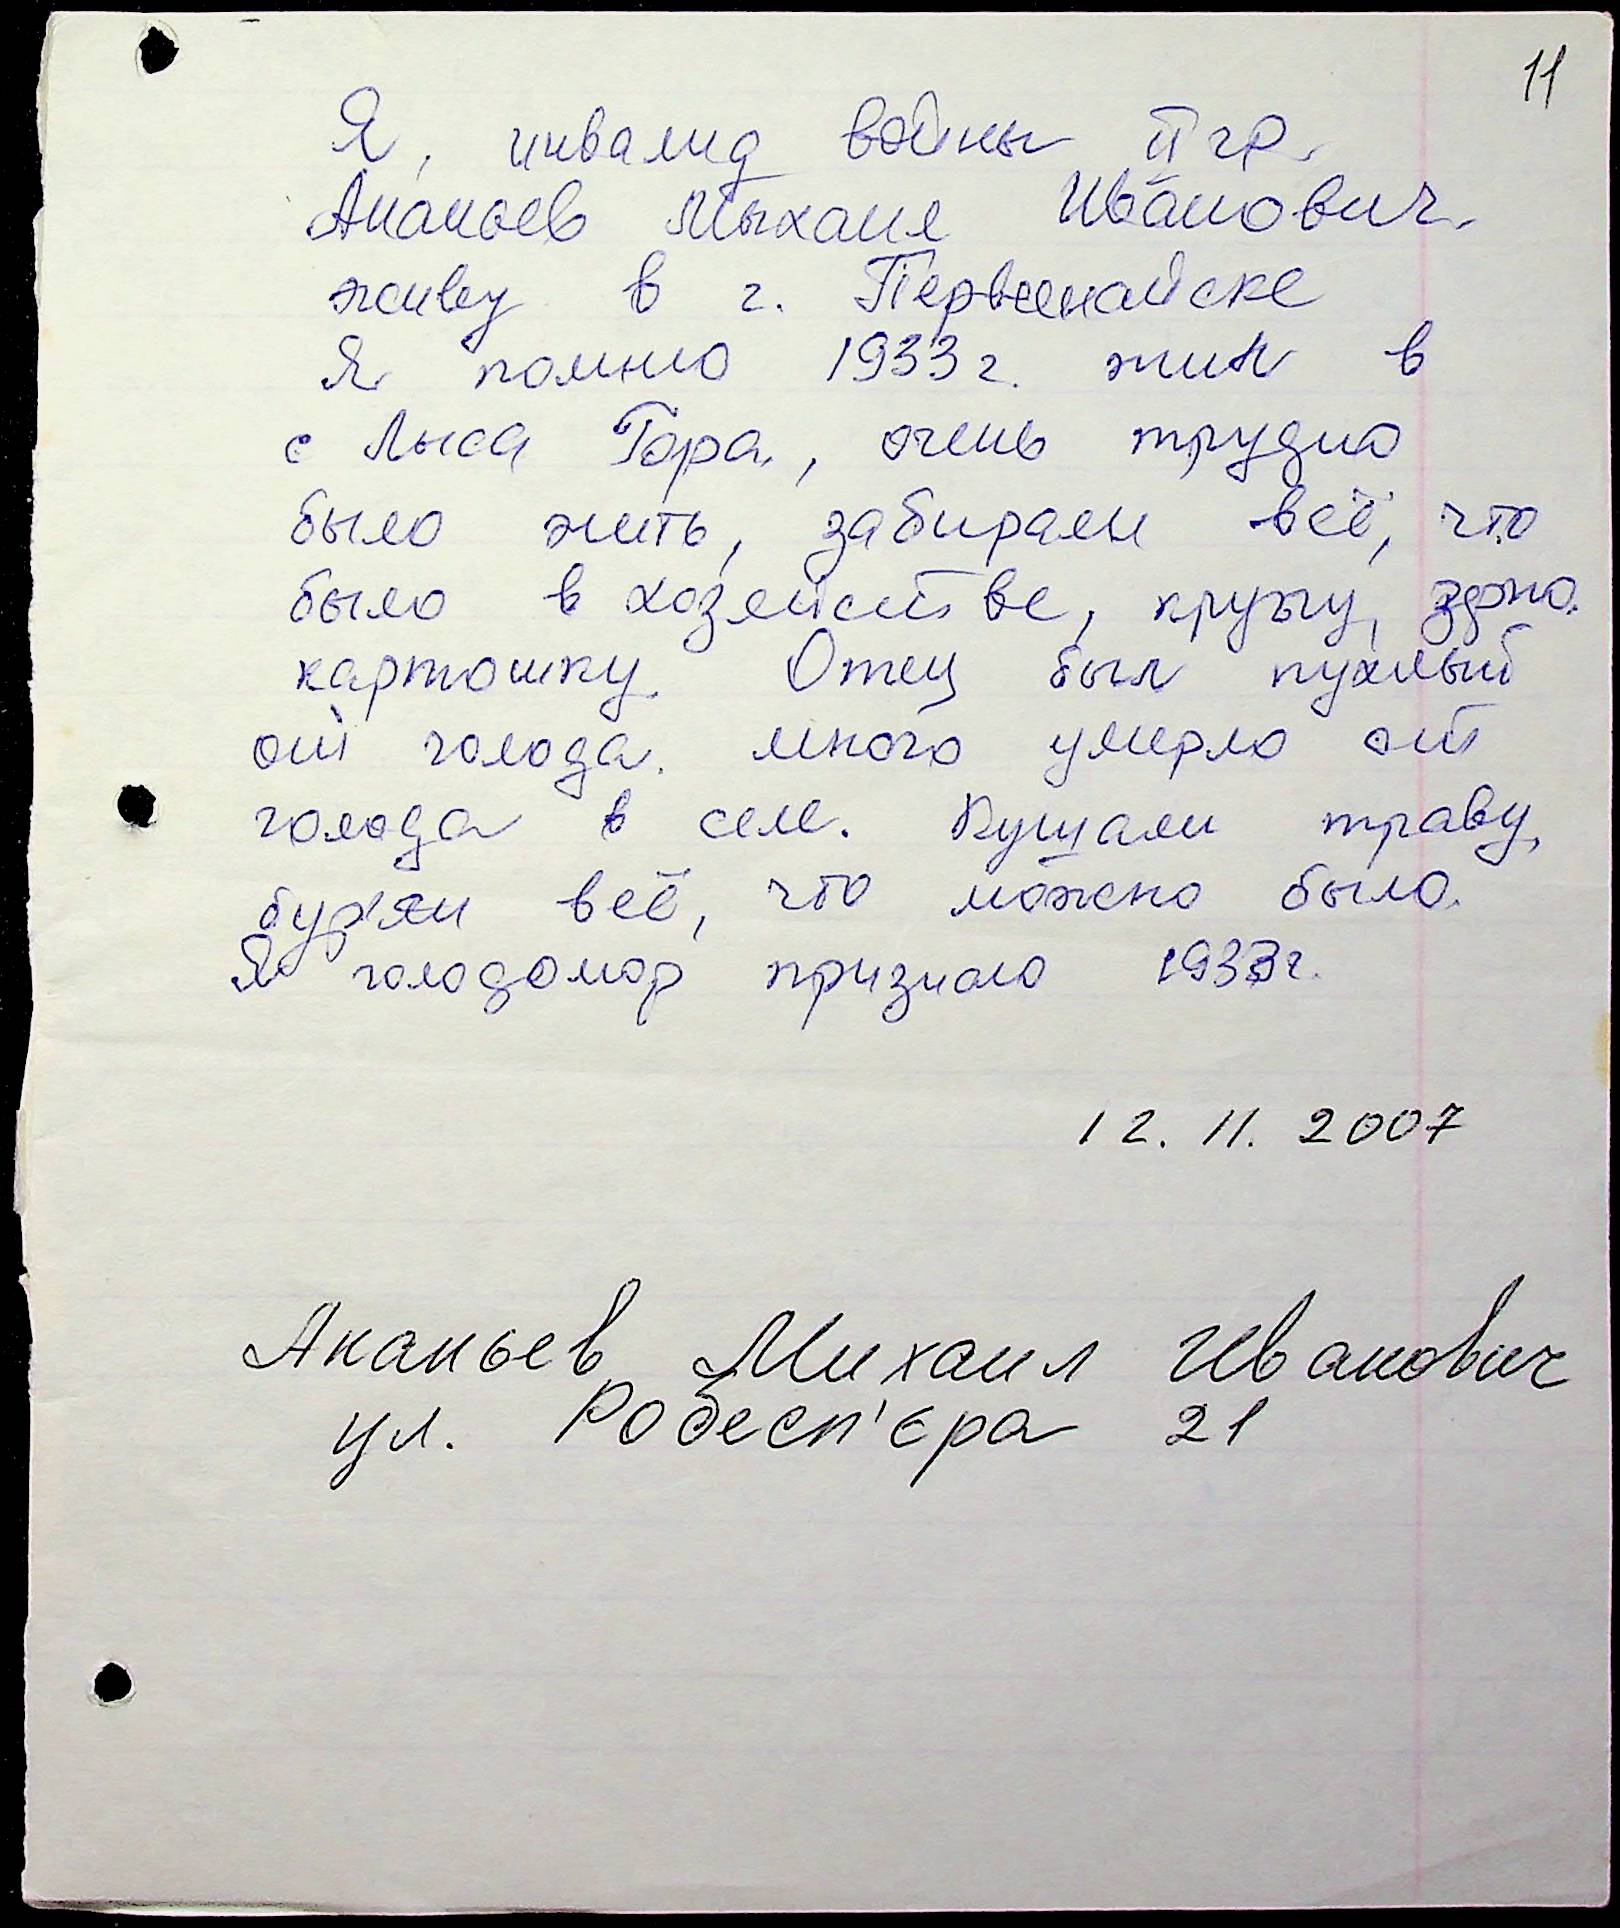 11
Я, инвалид войны II гр.
Ананьев Мыхаил Иванович.
живу в г. Первомайске
Я помню 1933 г. жил в
с Лыса Гора, очень трудно
было жить, забирали всё, что
было в хозяйстве, крупу,
картошку. Отец был пухлый
от голода. много умерло от
голода в селе. Кушали траву,
бур'ян всё, что можно было.
Я голодомор признаю 1933г.
12. 11. 2007
Ананьев Михаил Иванович
ул. Робесп'єра 21